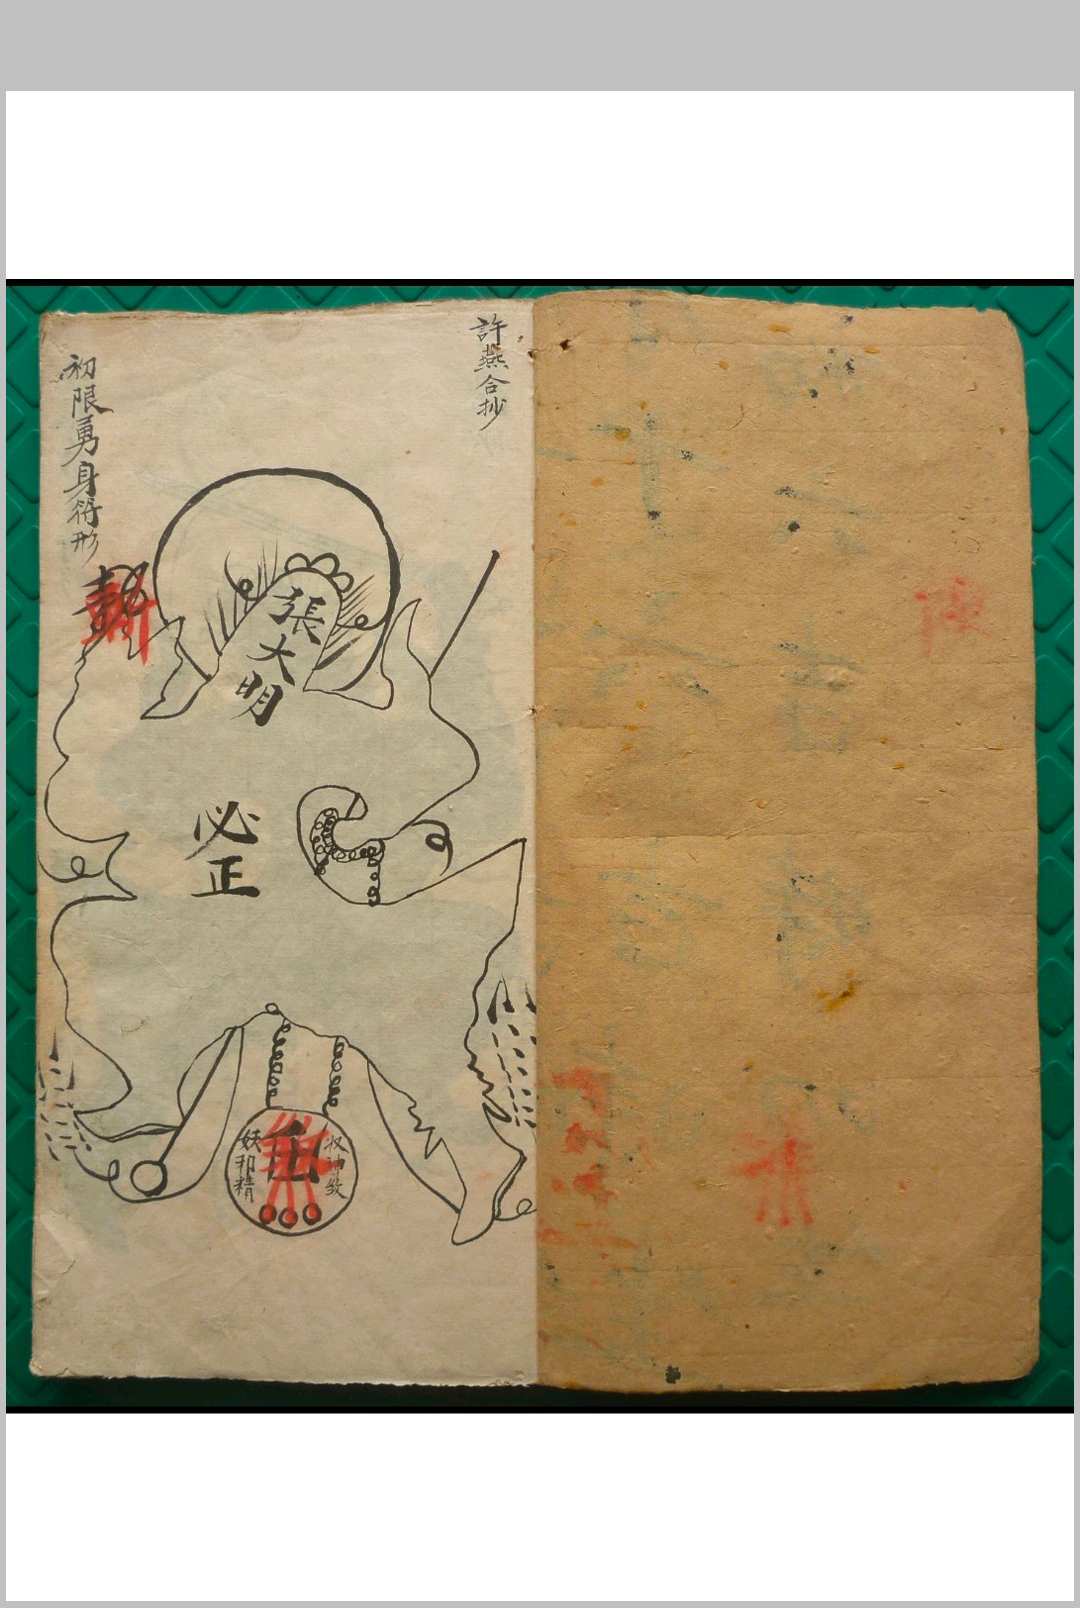 許燕合抄
張大明
必正
收神煞
妖和精
初限勇身符形